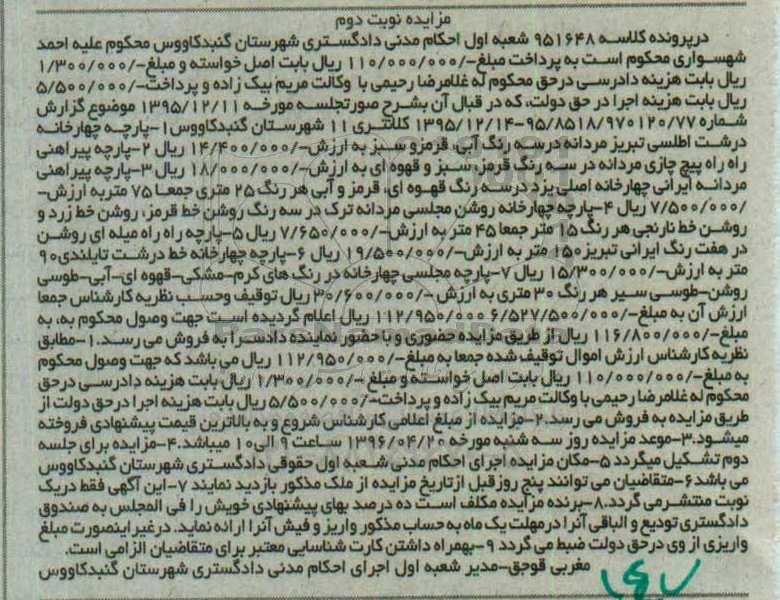 مزایده نوبت دوم
درپرونده کلاسه ۹۵۱۶۴۸ شعبه اول احکام مدنی دادگستری شهرستان گنبدکاووس محکوم علیه احمد
شهسواری محکوم است به پرداخت مبلغ-/۱۱۰/۰۰۰/۰۰۰ ریال بابت اصل خواسته و مبلغ-/۱/۳۰۰/۰۰۰
ریال بابت هزینه دادرسی درحق محکوم له غلامرضا رحیمی با وکالت مریم بیک زاده و پرداخت-/۵/۵۰۰/۰۰۰
ریال بابت هزینه اجرا در حق دولت، که در قبال آن بشرح صورتجلسه مورخه ۱۳۹۵/۱۲/۱۱ موضوع گزارش
شماره ۹۵/۸۵۱۸/۹۷۰۱۲۰/۷۷-۱۳۹۵/۱۲/۱۴ کلانتری ۱۱ شهرستان گنبدکاووس۱-پارچه چهارخانه
درشت اطلسی تبریز مردانه درسه رنگ آبی، قرمزو سبز به ارزش-/۱۴/۴۰۰/۰۰۰ ریال ۲-پارچه پیراهنی
راه راه پیچ چازی مردانه در سه رنگ قرمز، سبز و قهوه ای به ارزش-/۱۸/۰۰۰/۰۰۰ ریال ۳-پارچه پیراهنی
مردانه ایرانی چهارخانه اصلی یزد درسه رنگ قهوه ای، قرمز و آبی هر رنگ ۲۵ متری جمعا ۷۵ متربه ارزش-
/۷/۵۰۰/۰۰۰ ریال ۴-پارچه چهارخانه روشن مجلسی مردانه ترک در سه رنگ روشن خط قرمز، روشن خط زرد و
روشن خط نارنجی هر رنگ ۱۵ متر جمعا ۴۵ متر به ارزش-/۷/۶۵۰/۰۰۰ ریال ۵-پارچه راه راه میله ای روشن
در هفت رنگ ایرانی تبریز ۱۵۰ متر به ارزش-/۱۹/۵۰۰/۰۰۰ ریال ۶-پارچه چهارخانه خط درشت تایلندی ۹۰
متر به ارزش-/۱۵/۳۰۰/۰۰۰ ریال ۷-پارچه مجلسی چهارخانه در رنگ های کرم-مشکی-قهوه ای-آبی-طوسی
روشن-طوسی سیر هر رنگ ۳۰ متری به ارزش -/۳۰/۶۰۰/۰۰۰ ریال توقیف وحسب نظریه کارشناس جمعا
ارزش آن به مبلغ-/۶/۵۲۷/۵۰۰/۰۰۰ ۱۱۲/۹۵۰/۰۰۰ ریال اعلام گردیده است جهت وصول محکوم به، به
مبلغ-/۱۱۶/۸۰۰/۰۰۰ ریال از طریق مزایده حضوری و با حضور نماینده دادسرا به فروش می رسد.۱-مطابق
نظریه کارشناس ارزش اموال توقیف شده جمعا به مبلغ-/۱۱۲/۹۵۰/۰۰۰ ریال می باشد که جهت وصول محکوم
به مبلغ-/۱۱۰/۰۰۰/۰۰۰ ریال بابت اصل خواسته و مبلغ -/۱/۳۰۰/۰۰۰ ریال بابت هزینه دادرسی درحق
محکوم له غلامرضا رحیمی با وکالت مریم بیک زاده و پرداخت-/۵/۵۰۰/۰۰۰ ریال بابت هزینه اجرا درحق دولت از
طریق مزایده به فروش می رسد.۲-مزایده از مبلغ اعلامی کارشناس شروع و به بالاترین قیمت پیشنهادی فروخته
میشود.۳-موعد مزایده روز سه شنبه مورخه ۱۳۹۶/۰۴/۲۰ ساعت ۹ الی ۱۰ میباشد.۴-مزایده برای جلسه
دوم تشکیل میگردد ۵-مکان مزایده اجرای احکام مدنی شعبه اول حقوقی دادگستری شهرستان گنبدکاووس
می باشد ۶-متقاضیان می توانند پنج روز قبل ازتاریخ مزایده از ملک مذکور بازدید نمایند ۷-این آگهی فقط دریک
نوبت منتشرمی گردد.۸-برنده مزایده مکلف است ده درصد بهای پیشنهادی خویش را فی المجلس به صندوق
دادگستری تودیع و الباقی آنرا درمهلت یک ماه به حساب مذکور واریز و فیش آنرا ارائه نماید. درغیر اینصورت مبلغ
واریزی از وی درحق دولت ضبط می گردد ۹-بهمراه داشتن کارت شناسایی معتبر برای متقاضیان الزامی است.
مغربی قوجق-مدیر شعبه اول اجرای احکام مدنی دادگستری شهرستان گنبدکاووس